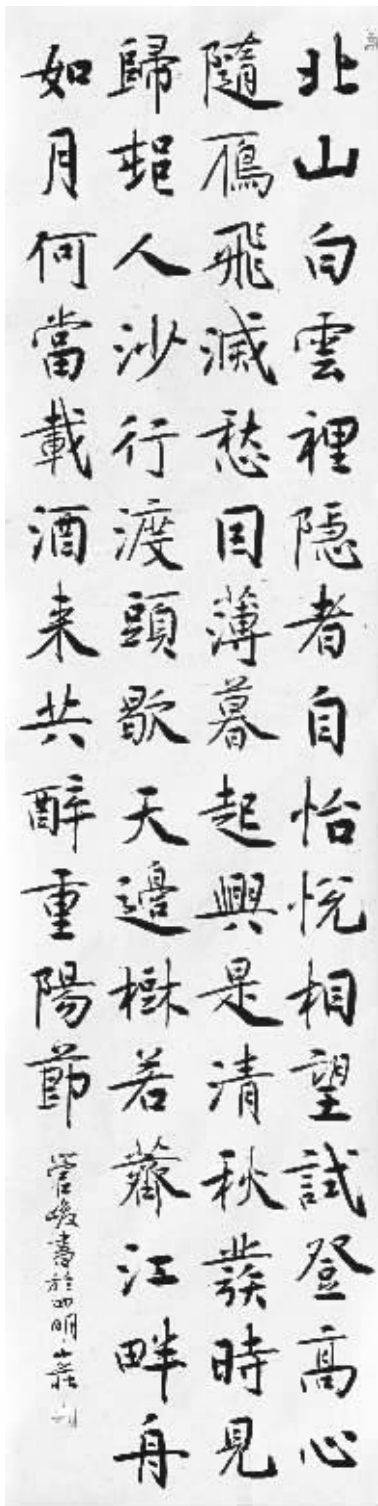 北山白雲裡隱者自怡悅相望試登高心
隨鴈飛滅愁因薄暮起興是清秋發時見
歸邨人沙行渡頭歇天邊樹若薺江畔舟
如月何當載酒来共醉重陽節
管峻書於四明山莊